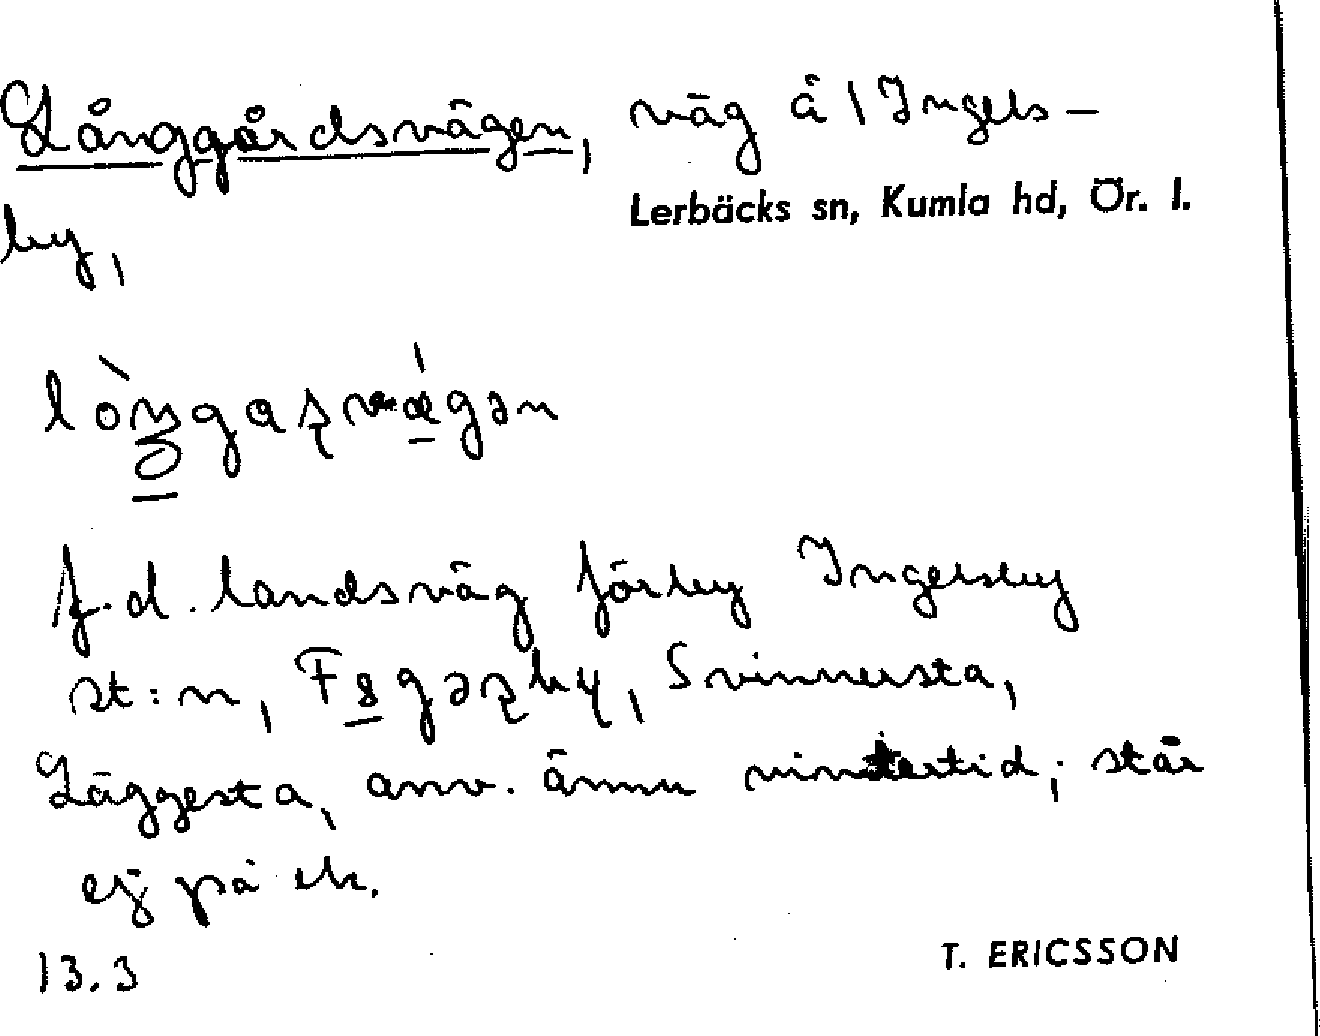 Långgårdsvägen, väg å 1 Ingels-
Lerbäcks sn, Kumla hd, Ör. l.
by,
f.d. landsväg förby Ingelsby
st:n, Svinnersta,
Läggesta, anv. ännu vintertid; står
ej på ek.
13.3
T. ERICSSON